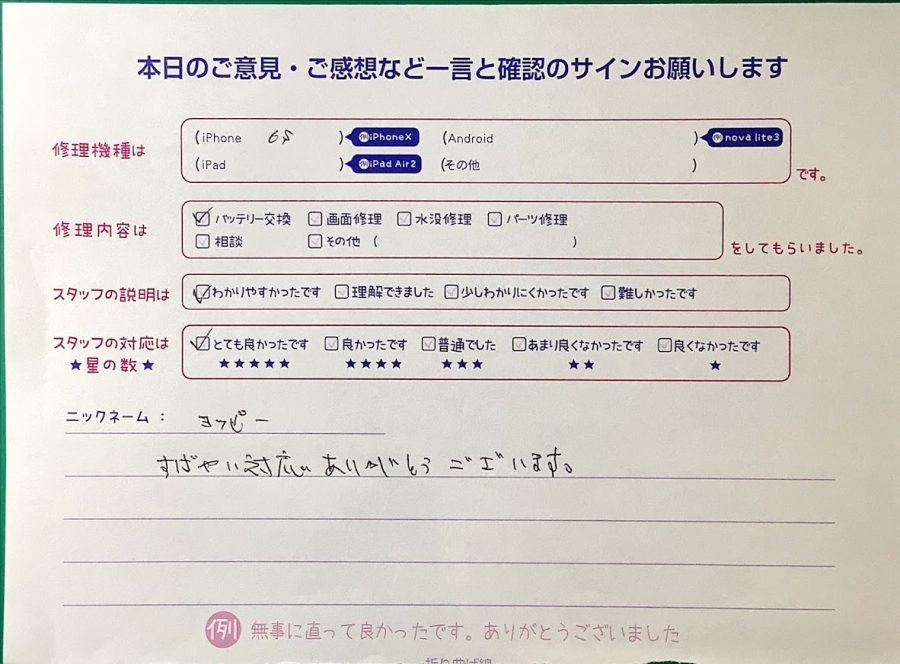 本日のご意見・ご感想など一言と確認のサインお願いします
修理機種は
(iPhone 6S ) 例iPhoneX (Android ) 例nova lite3
(iPad ) 例iPad Air2 (その他 )
です。
修理内容は
バッテリー交換 画面修理 水没修理 パーツ修理
相談 その他 ( )
をしてもらいました。
スタッフの説明は
わかりやすかったです 理解できました 少しわかりにくかったです 難しかったです
スタッフの対応は
★星の数★
とても良かったです 良かったです 普通でした あまり良くなかったです 良くなかったです
★★★★★ ★★★★ ★★★ ★★ ★
ニックネーム: ヨッピー
すばやい対応ありがとうございます。
例 無事に直って良かったです。ありがとうございました